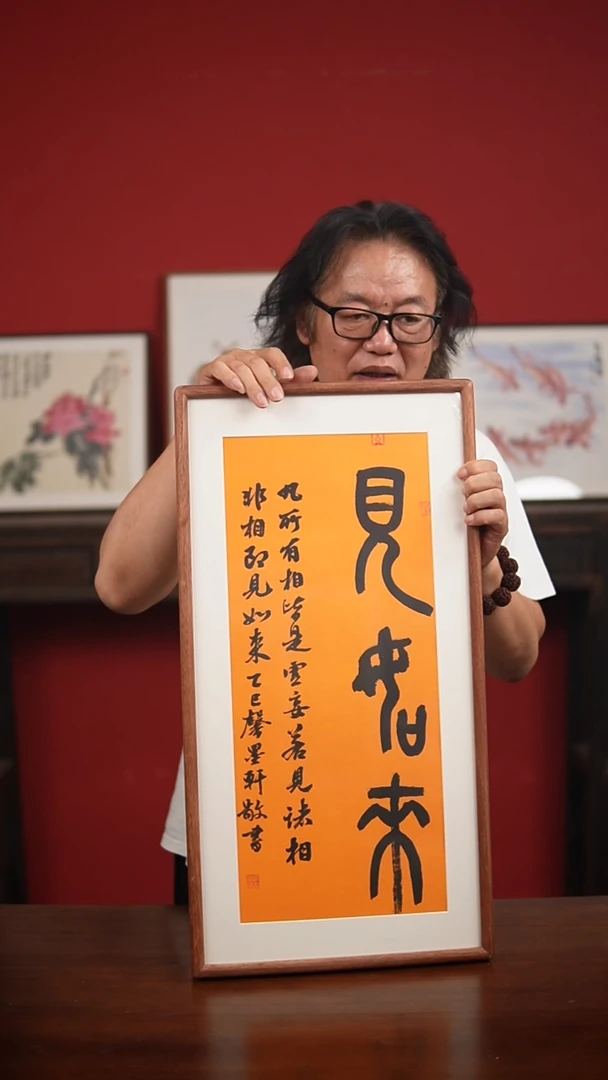 見如来
凡所有相皆是虚妄若見諸相
非相即見如来乙巳馨墨軒敬書